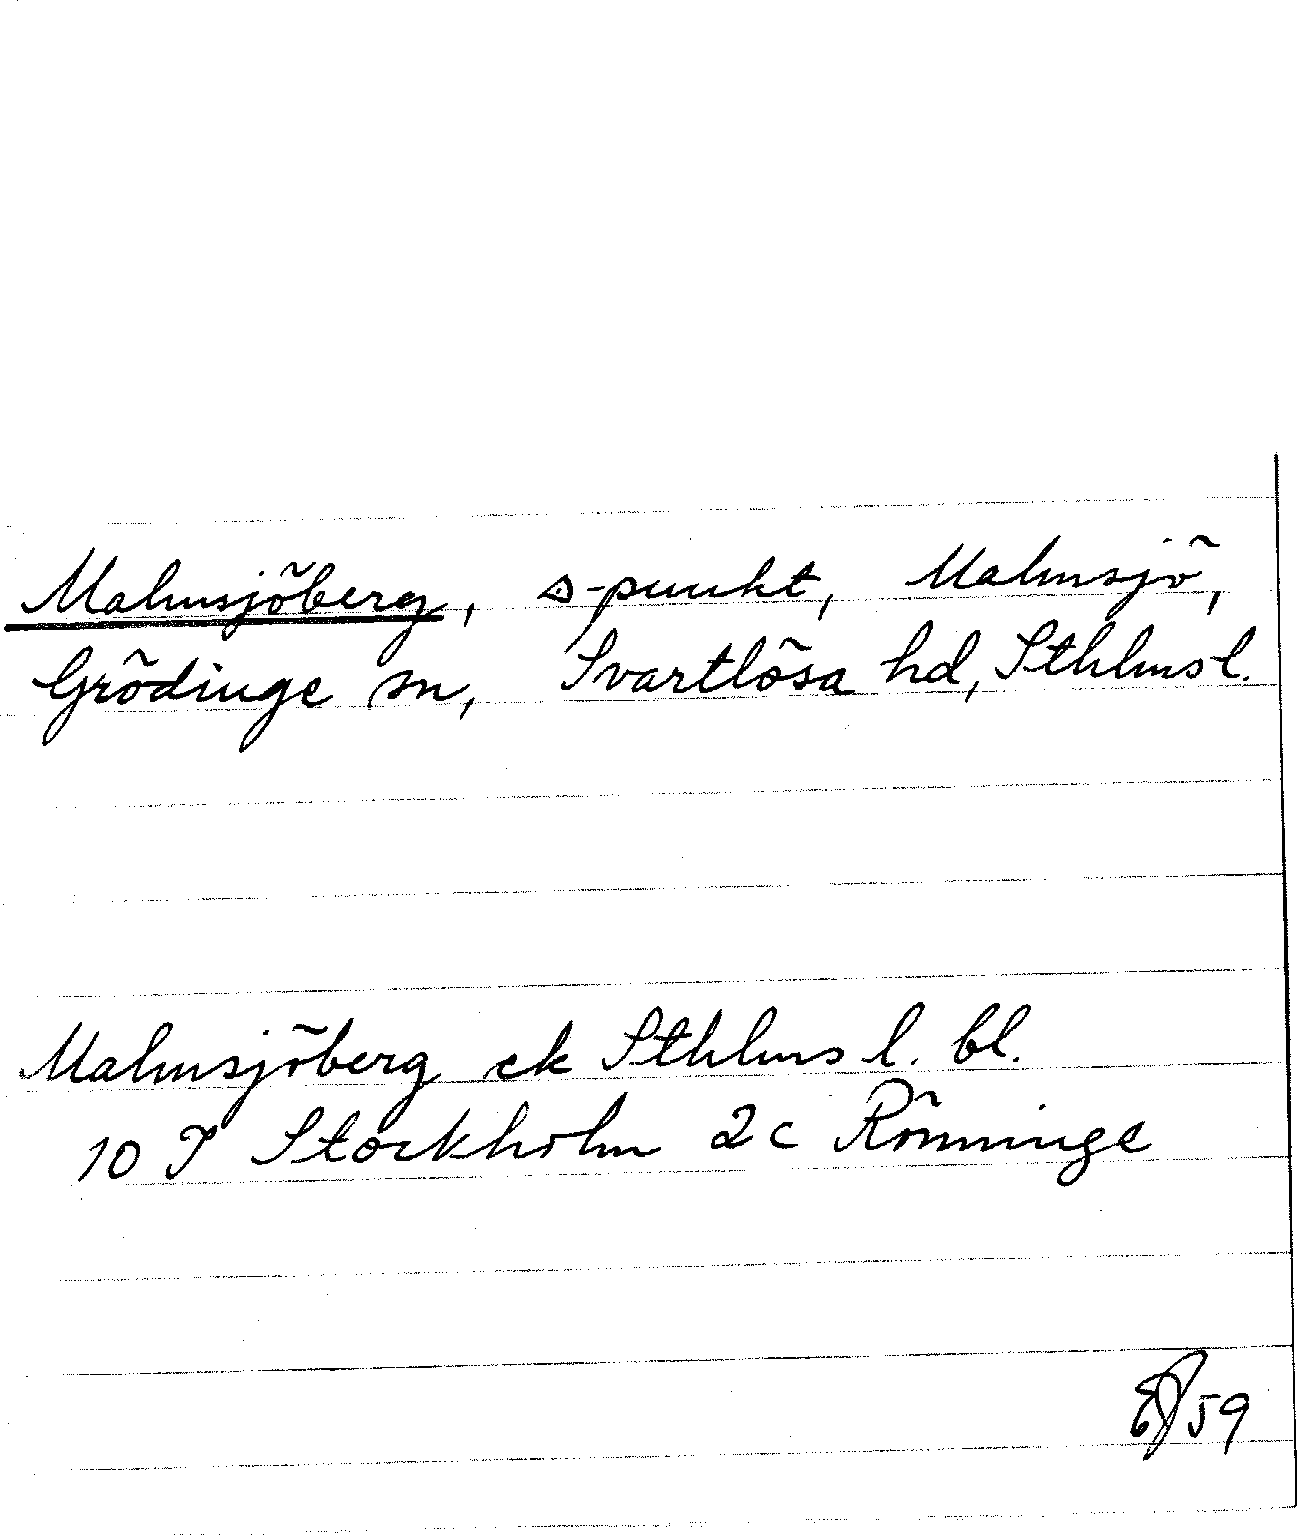 Malmsjöberg, △-punkt, Malmsjö,
Grödinge sn, Svartlösa hd, Sthlms l.
Malmsjöberg ek Sthlms l. bl.
10 I Stockholm 2c Rönninge
59